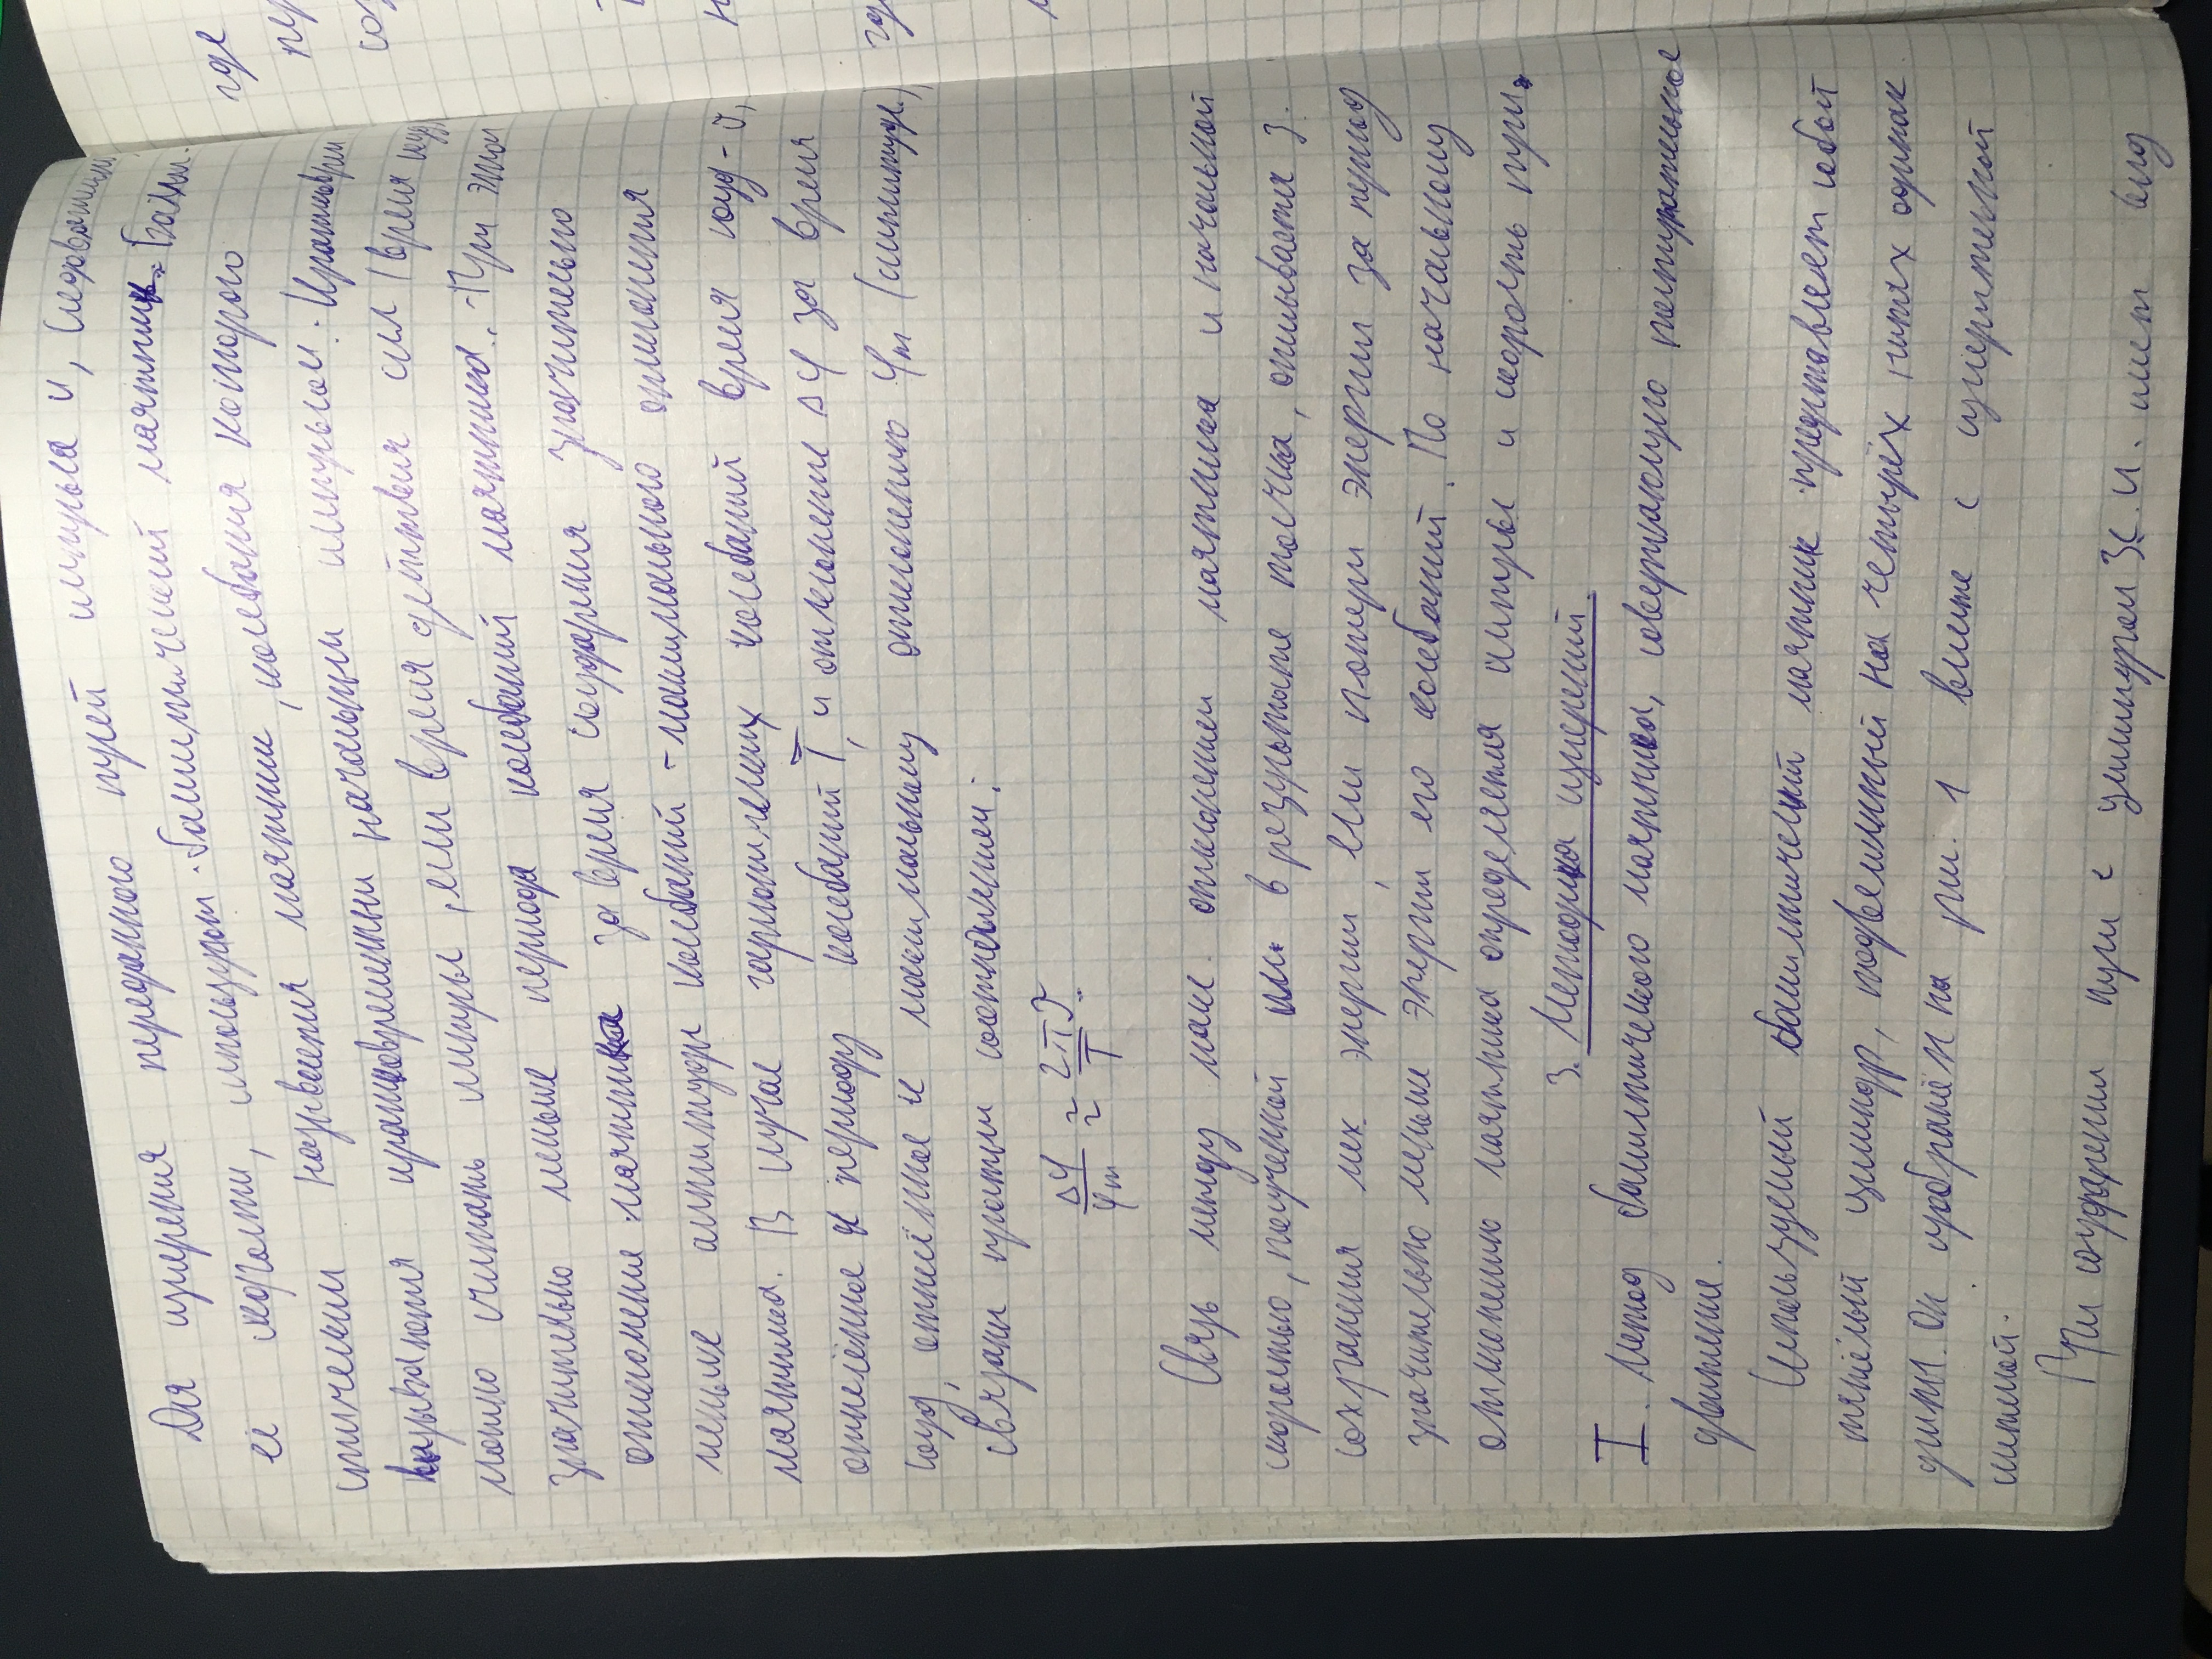 Для измерения переданного пулей импульса и, следовательно,
её скорости, используют баллистический маятник. Балли-
стическим называется маятник, колебания которого
вызываются кратковременным начальным импульсом. Кратковрем
можно считать импульс, если время действия сил (время соуд.
значительно меньше периода колебаний маятника. При этом
отклонение маятника за время соударения значительно
меньше амплитуды колебаний - максимального отклонения
маятника. В случае гармонических колебаний время соуд - τ,
отнесённое к периоду колебаний T, и отклонение Δφ за время
соуд, отнесённое к максимальному отклонению φm (амплитуде)
связаны простым соотношением:
Δφ/φm ≈ 2πτ/T.
Связь между макс. отклонением маятника и начальной
скоростью, полученной им в результате толчка, описывается з.
сохранения мех. энергии, если потери энергии за период
значительно меньше энергии его колебаний. По начальному
отклонению маятника определяется импульс и скорость пули.
3. Методика измерений.
I. Метод баллистического маятника, совершающего поступательное
движение.
Используемый баллистический маятник представляет собой
тяжёлый цилиндр, подвешенный на четырёх нитях одинак
длины. Он изображён на рис. 1 вместе с измерительной
системой.
При соударении пули с цилиндром З.С.И. имеет вид
где
пер